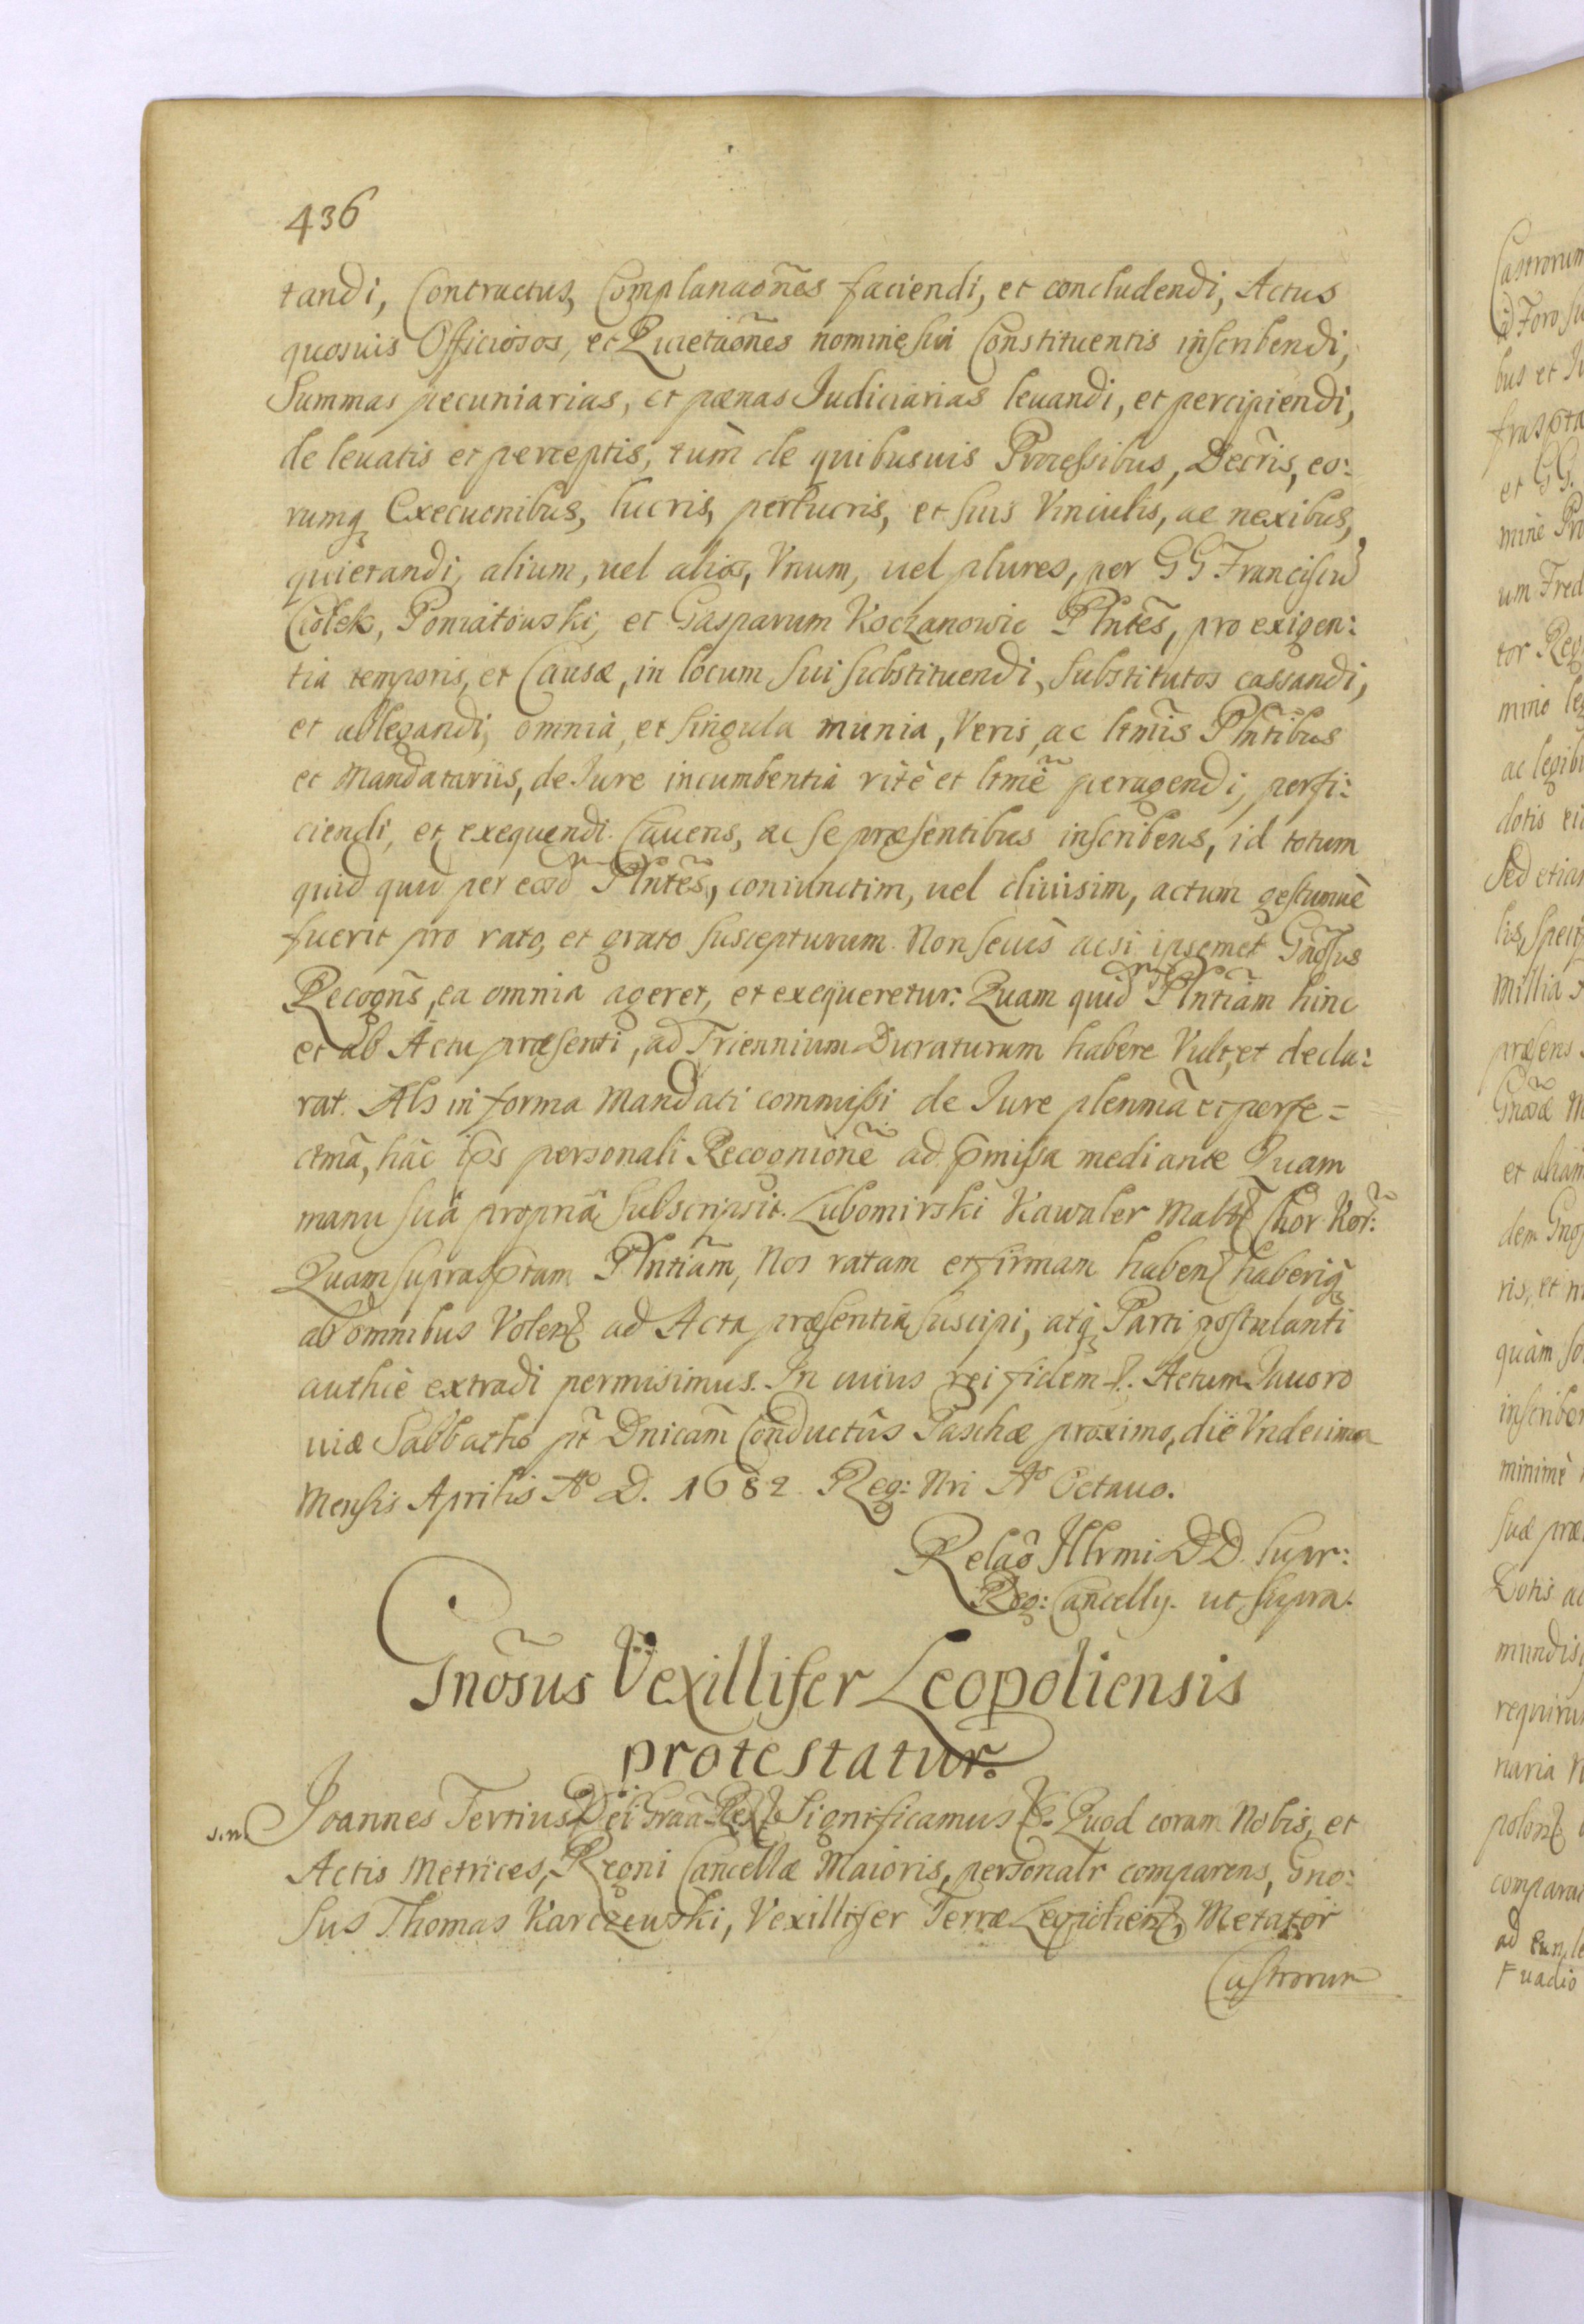 436
tandi, Contractus, Complanaões faciendi, et concludendi, Actus
quosuis Officiosos, et Quietaões nomine sui Constituentis inscribendi,
Summas pecuniarias, et pænas Judiciarias leuandi, et percipiendi,
de leuatis et perceptis, tum de quibusuis Processibus, Decris, eo:
rumq Execuonibus, lucris, perlucris, et suis Vinculis, ac nexibus,
quietandi, alium, uel alios, Vnum, uel plures, per GG Franciscu
Ciołek, Poniatouski, et Gasparum Koczanowic Plntes, pro exigen:
tia temporis, et Causæ, in locum sui substituendi, substitutos cassandi,
et ablegandi, omnia, et singula munia, Veris, ac ltmis Plntibus
et Mandatariis, de Jure incumbentia ritè et ltmè peragendi, perfi:
ciendi, et exequendi. Cauens, ac se præsentibus inscribens, id totum
quid quid per eosd Plntes, coniunctim, uel diuisim, actum gestumuè
fuerit pro rato, et grato suscepturum. Non secus acsi ipsemet Gnosus
Recogns, ea omnia ageret, et exequeretur. Quam quid Plntiam hinc
et ab Actu præsenti, ad Triennium Duraturam habere Vult, et decla:
rat. Als in forma Mandati commissi de Jure plenmã et perfe=
ctmã, hãc ips personali Recognione ad pmissa mediante Quam
manu suâ propriâ Subscripsit. Lubomirski Kawaler Maltc Chor. Kor:
Quam suprasptam Plntiam, Nos ratam et firmam haben haberiq
ab omnibus Volen ad Acta præsentia suscipi, atq Parti postulanti
authè extradi permisimus. In cuius rei fidem &. Actum Jauoro
uiæ Sabbatho pt Dnicam Conductûs Paschæ proximo, die Vndecima
Mensis Aprilis Aº D. 1682. Reg: Nri Aº Octauo.
Relao Illrmi DD. supr:
Reg: Cancelly. ut supra.
Gnosus Vexillifer Leopoliensis
protestatur.
s.n. Joannes Tertius Dei Graa Rex & Significamus &. Quod coram Nobis, et
Actis Metrices, Regni Cancellæ Maioris, personalr comparens, Gno:
sus Thomas Karczewski, Vexillifer Terræ Leopolien, Metator
Castrorum